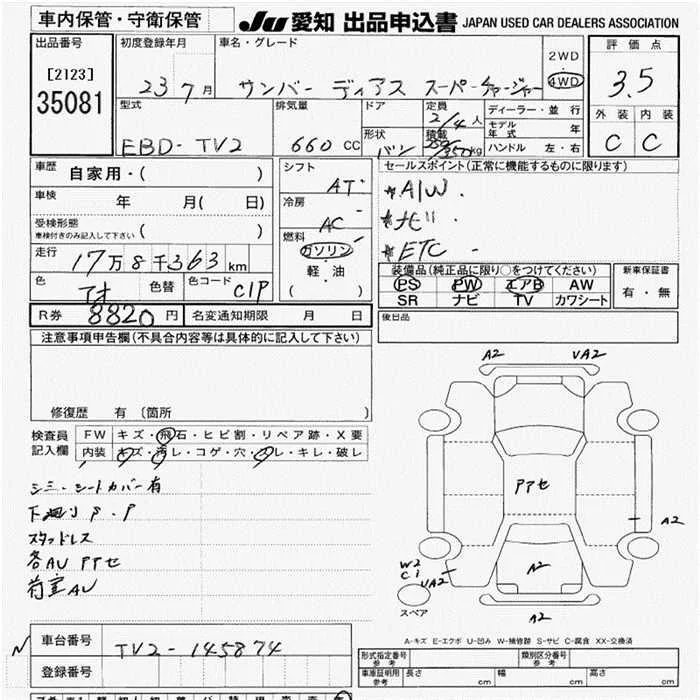 車内保管・守衛保管
JU 愛知 出品申込書 JAPAN USED CAR DEALERS ASSOCIATION
出品番号
[2123]
35081
初度登録年月
23 7月
車名・グレード
サンバー ディアス スーパーチャージャー
2WD
4WD
評価点
3.5
外装 内装
C C
型式
EBD-TV2
排気量
660 CC
ドア
形状
バン
定員
2/4人
積載
350kg
ディーラー・並行
モデル年式 年
ハンドル 左・右
車歴
自家用・( )
車検
年 月( 日)
受検形態
車検付きのみ記入して下さい
( )
走行
17万8千363km
色
色替
色コード
C1P
シフト
AT
冷房
AC
燃料
ガソリン
・
軽・油
( )
セールスポイント(正常に機能するものに限ります)
*A/W
*ナビ
*ETC
装備品(純正品に限り○をつけてください)
PS PW エアB AW
SR ナビ TV カワシート
新車保証書
有・無
R券 8820円
名変通知期限 月 日
後日品
注意事項申告欄(不具合内容等は具体的に記入して下さい)
修復歴 有 〔箇所 〕
検査員
記入欄
FW キズ・飛石・ヒビ割・リペア跡・X要
内装 キズ・汚レ・コゲ・穴・スレ・キレ・破レ
シミ・シートカバー有
下廻り P.P
スタッドレス
各AU PPセ
荷室AU
A2 UA2
PPセ
A2
A2
W2
C1
UA2
スペア
A2
A-キズ E-エクボ U-凹み W-補修跡 S-サビ C-腐食 XX-交換済
車台番号
TV2-145874
登録番号
形式指定番号
参考
類別区分番号
参考
車庫証明用
参考
長さ cm 幅 cm 高さ cm